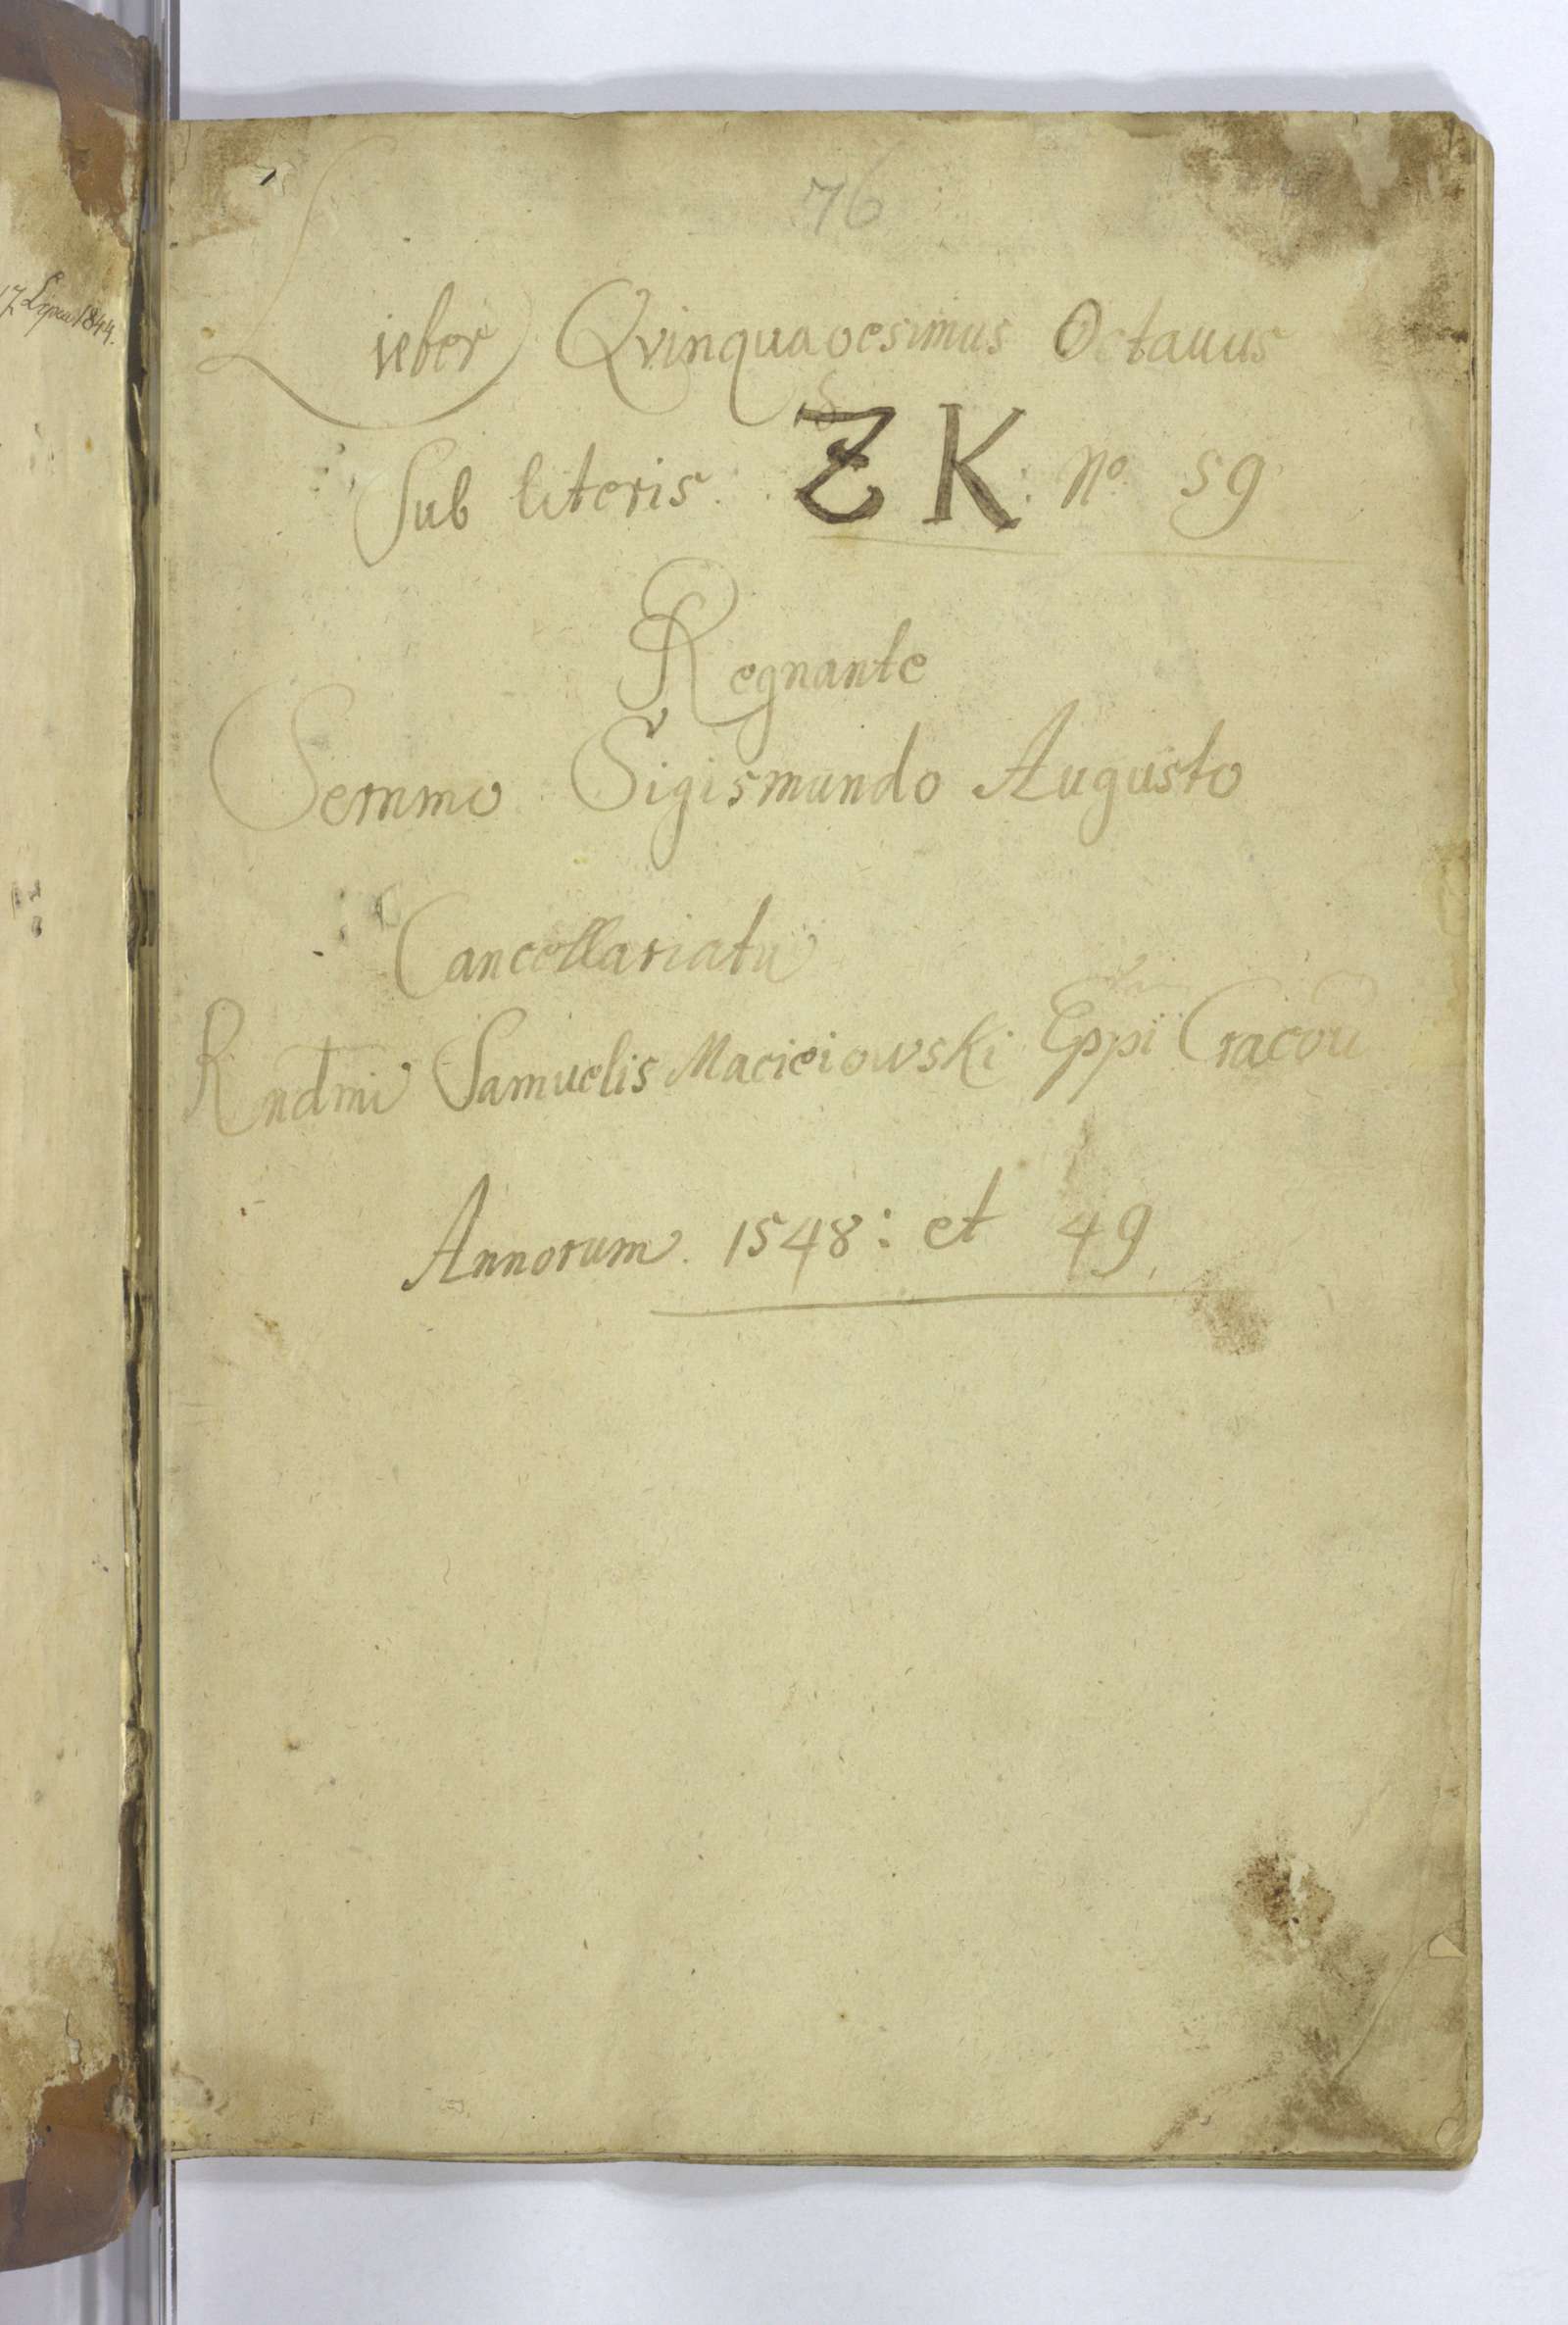 17 Lipca 1844.
76
Lieber Qvinquagesimus Octauus
Sub literis ZK: No 59
Regnante
Sernmo Sigismundo Augusto
Cancellariatu
Rndmi Samuelis Macieiowski Eppi Cracou
Annorum. 1548: et 49